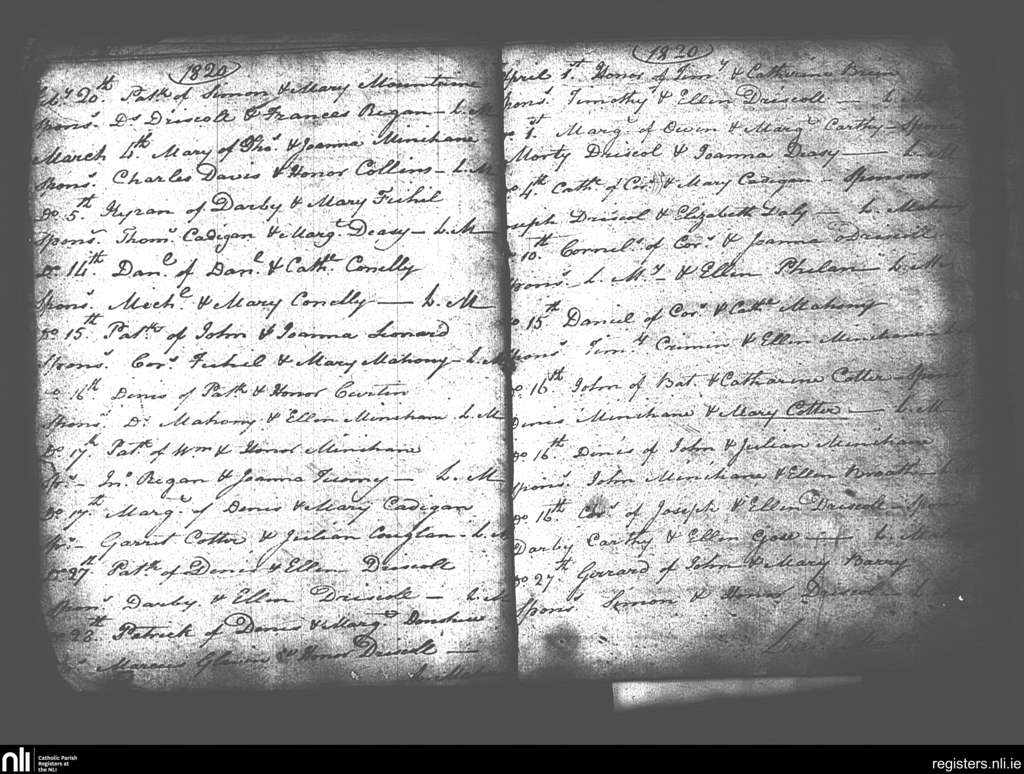 1820
Feby. 20th. Patk. of Simon & Mary Mountaine
Spons. Ds. Driscoll & Frances Regan – L. M
March 4th. Mary of Thos. & Joanna Minihane
Spons. Charles Davis & Honor Collins – L. M
Do. 5th. Kyran of Darby & Mary Fichil
Spons. Thom. Cadigan & Margt. Deasy – L. M
Do. 14th. Danl. of Danl. & Cathe. Conelly
Spons. Michl. & Mary Conelly — L. M
Do. 15th. Patk. of John & Joanna Leonard
Spons. Cors. Fichil & Mary Mahony – L. M
Do. 16th Denis of Patk & Honor Curtin
Spons. Ds. Mahony & Ellen Minihane – L. M
Do. 17h. Patk. of Wm & Honor Minihane
Sps. – Jno. Regan & Joanna Tuomy — L. M
Do. 17th. Margt. of Denis & Mary Cadigan
Sps. – Garret Cotter & Julian Couglan – L. M
Do. 27th. Patk. of Denis & Ellen Driscoll
Spons. Darby & Ellen Driscole – L. M
Do. 28. Patrick of Denis & Margt. Donohue
Honor Driscoll —
L. Mah
1820
April 1st. Honor of Timy. & Catherine Brien
Spons. Timothy & Ellen Driscoll — L. M
Do. 1st. Margt. of Owen & Margt. Carthy – Spons
Morty Driscol & Joanna Deasy — L. M
Do. 4th. Cathe. of Cors. & Mary Cadigan. Sponsors
Joseph Driscol & Elizabeth Daly — L. Mahony
Do. 10th. Cornels. of Cors. & Joanna ODriscoll
Spons. L. My. & Ellen Phelan – L. M
Do. 15th Daniel of Cors. & Cathe. Mahony
Spons. Timy. Crimin & Ellen Minihane
Do. 16th. John of Bat. & Catharine Cotter – Spons
Denis Minihane & Mary Cotter — L. M
Do. 16th. Denis of John & Julian Minihane
Spons. John Minihane & Ellen
Do. 16th. Cors. of Joseph & Ellen Driscoll – Spons
Darby Carthy & Ellen — L. M
Do. 27th. Gerrard of John & Mary Barry
Spons. Simon & Honor Driscol
nli
Catholic Parish
Registers at
the NLI
registers.nli.ie